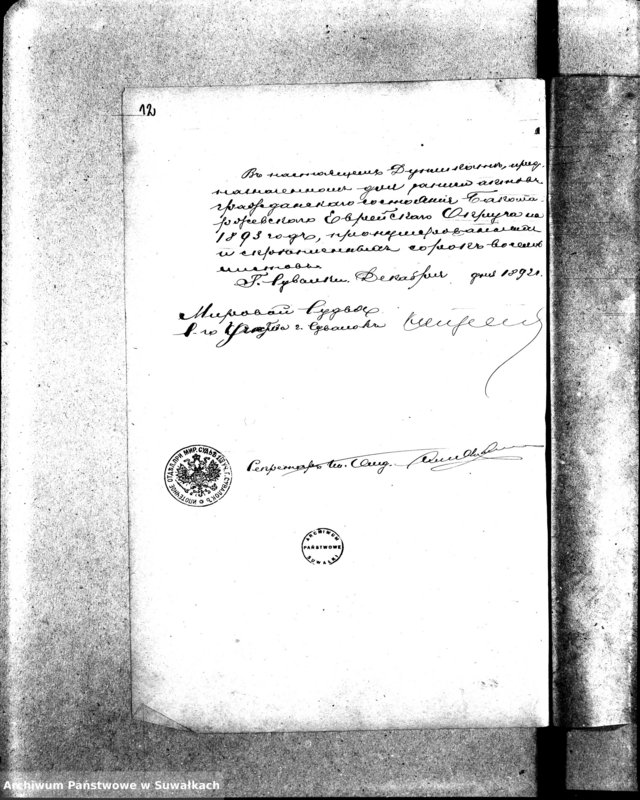 12
Въ настоящемъ Дупликатѣ, пред-
назначенномъ для записи актовъ
гражданскаго состоянія Бакала-
ржевскаго Еврейскаго Округа на
1893 годъ, пронумерованныхъ
и скрѣпленныхъ сорокъ восемь
листовъ.
Г. Сувалки. Декабря дня 1892 г.
Мировой Судья
г. Сувалокъ
Секретарь
ARCHIWUM
PAŃSTWOWE
SUWAŁKI
Archiwum Państwowe w Suwałkach